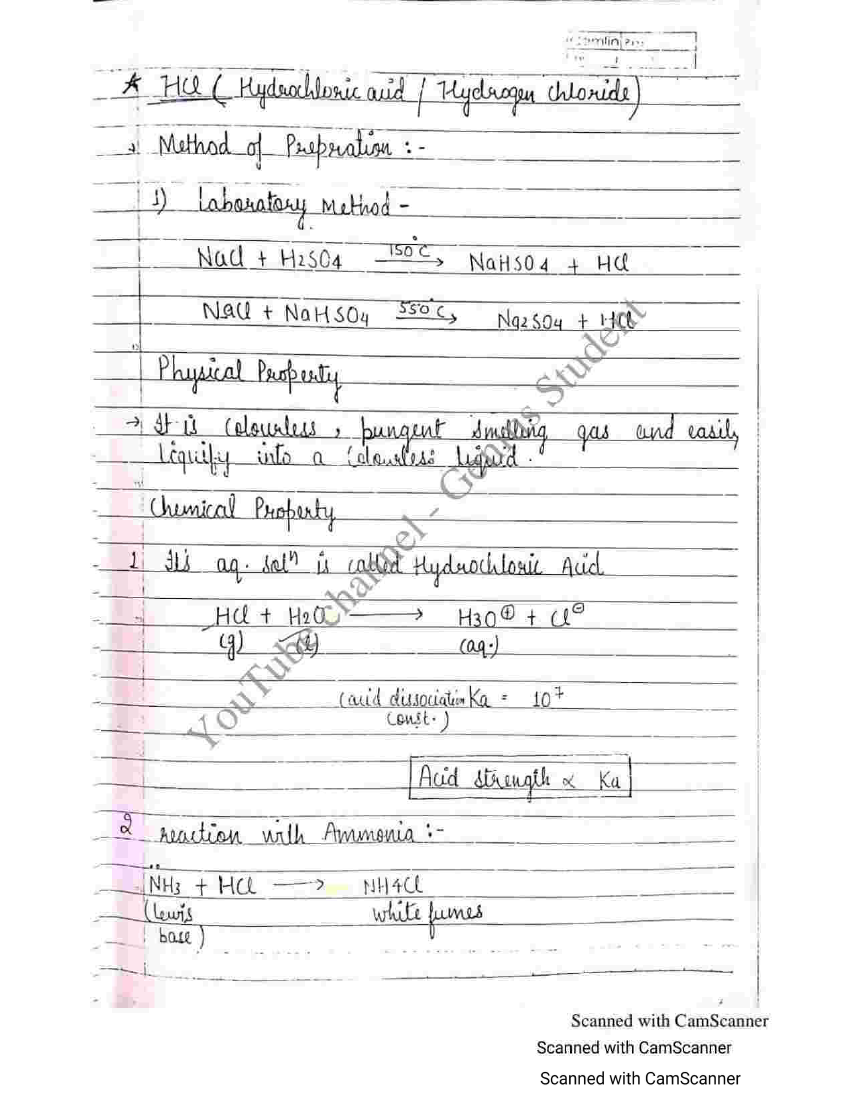 * HCl ( Hydrochloric acid / Hydrogen chloride)
Method of Prepration :-
1) Laboratory Method -
NaCl + H2SO4 150°C → NaHSO4 + HCl
NaCl + NaHSO4 550°C → Na2SO4 + HCl
Physical Property
→ It is colourless, pungent smelling gas and easily
liquify into a colourless liquid.
Chemical Property
1 It's aq. solⁿ is called Hydrochloric Acid
HCl + H2O ⟶ H3O⊕ + Cl⊖
(g) (l) (aq.)
(acid dissociation Ka = 10⁷
const.)
Acid strength ∝ Ka
2 reaction with Ammonia :-
NH3 + HCl ⟶ NH4Cl
(lewis white fumes
base)
YouTube channel - Genius Student
Scanned with CamScanner
Scanned with CamScanner
Scanned with CamScanner